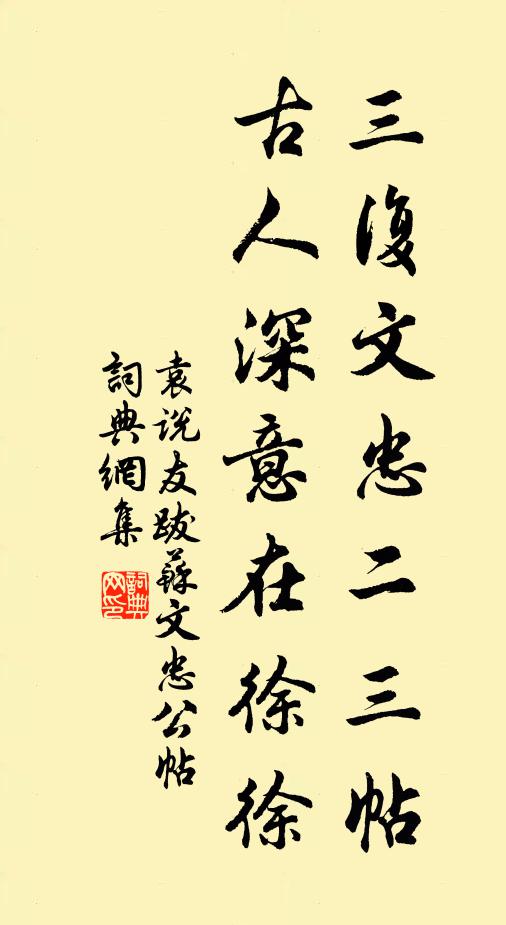 三復文忠二三帖
古人深意在徐徐
袁說友跋蘇文忠公帖
詞典網集
詞典網印